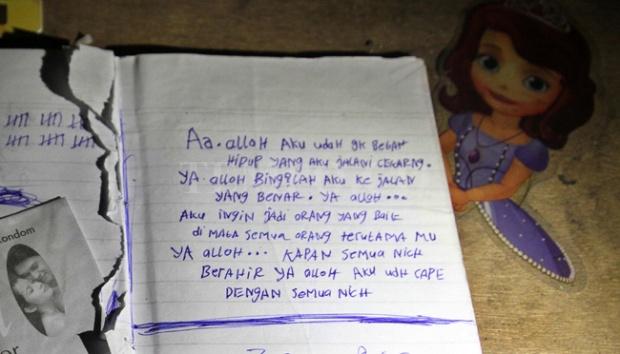 ondom
or
Aa. alloH AKU udaH gk BetaH
HIDUP YANG AKU JALANI CEKARNG.
YA. alloH BingBLAH AKU KE JALAN
YANG BENAR. YA alloH...
AKU INGIN JADI ORANG YANG BAIK
di MATA SEMUA ORANG teRUTAMA MU
YA alloH... KAPAN SEMUA NICH
BeRAHIR YA alloH AKU UdH CAPE
DENGAN SEMUA NICH